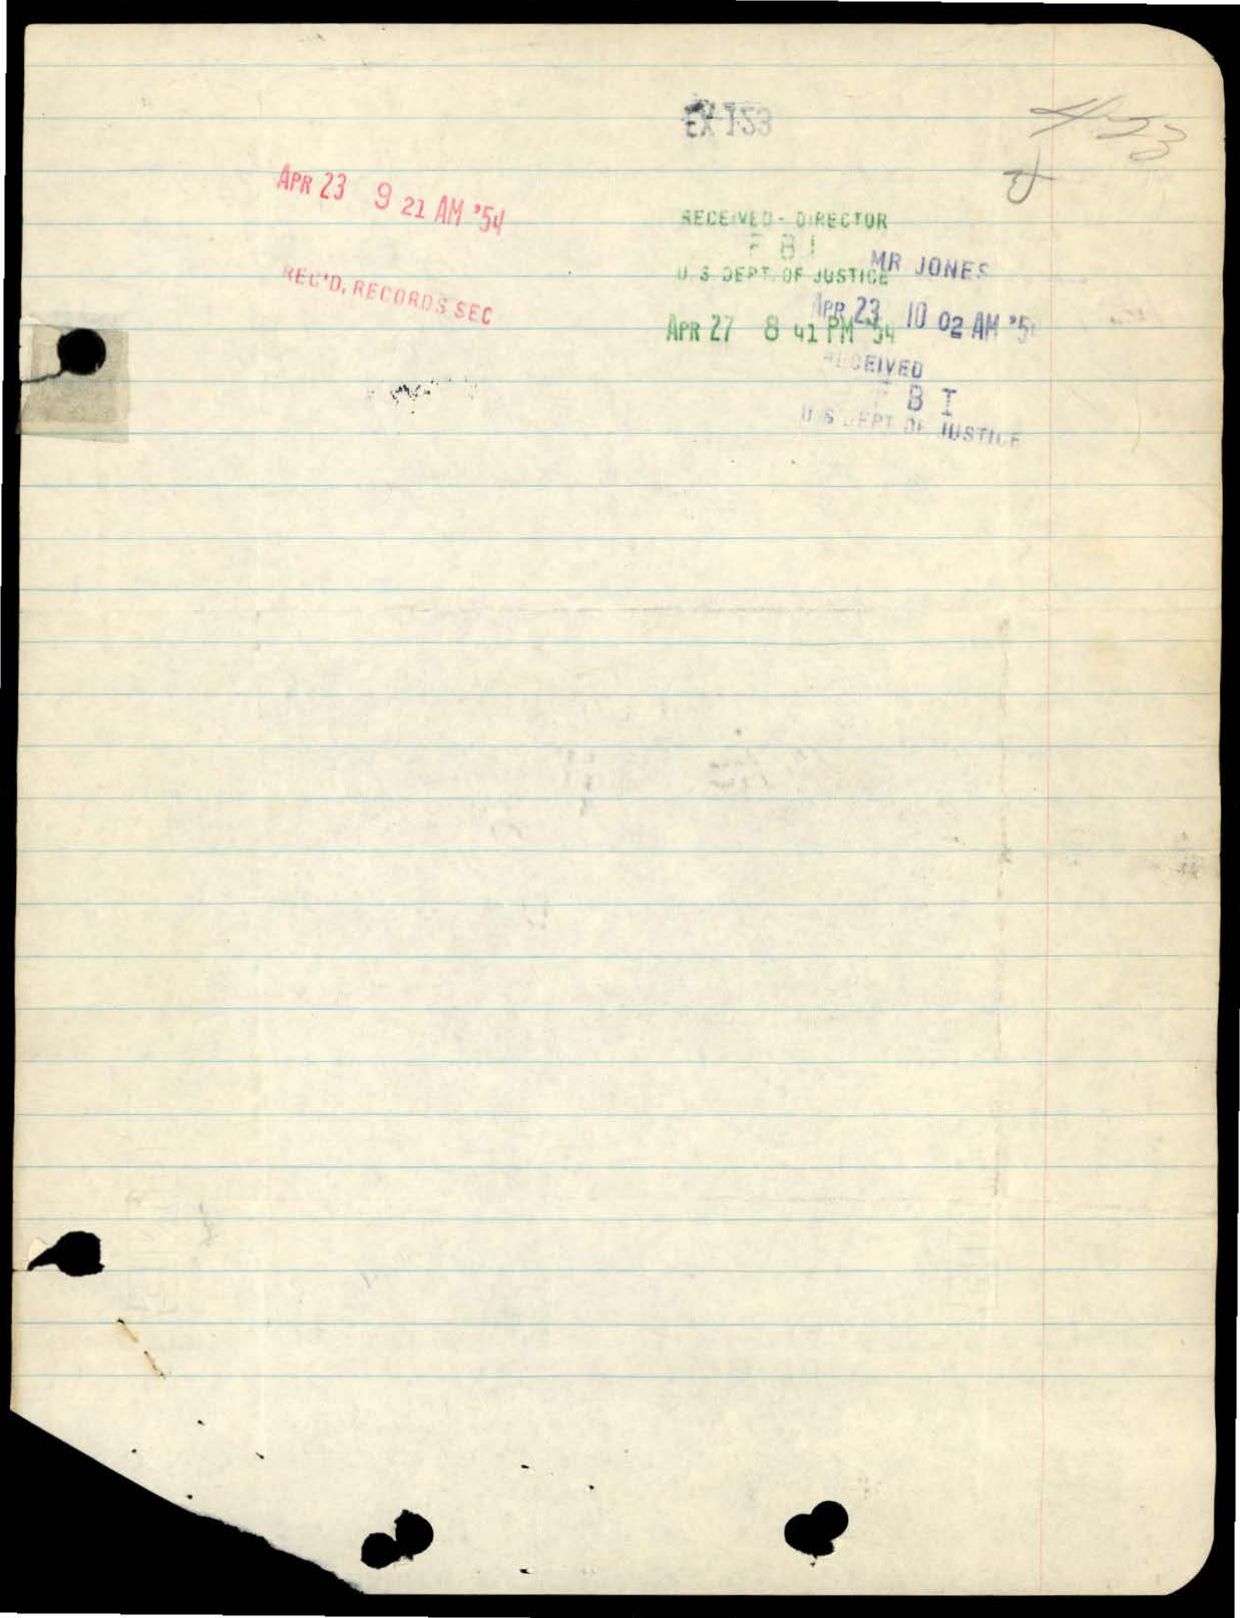 EX-153
4/23
APR 23 9 21 AM '54
REC'D, RECORDS SEC
RECEIVED - DIRECTOR
F B I
U. S. DEPT. OF JUSTICE
APR 27 8 41 PM '54
MR JONES
APR 23 10 02 AM '54
RECEIVED
F B I
U S DEPT OF JUSTICE